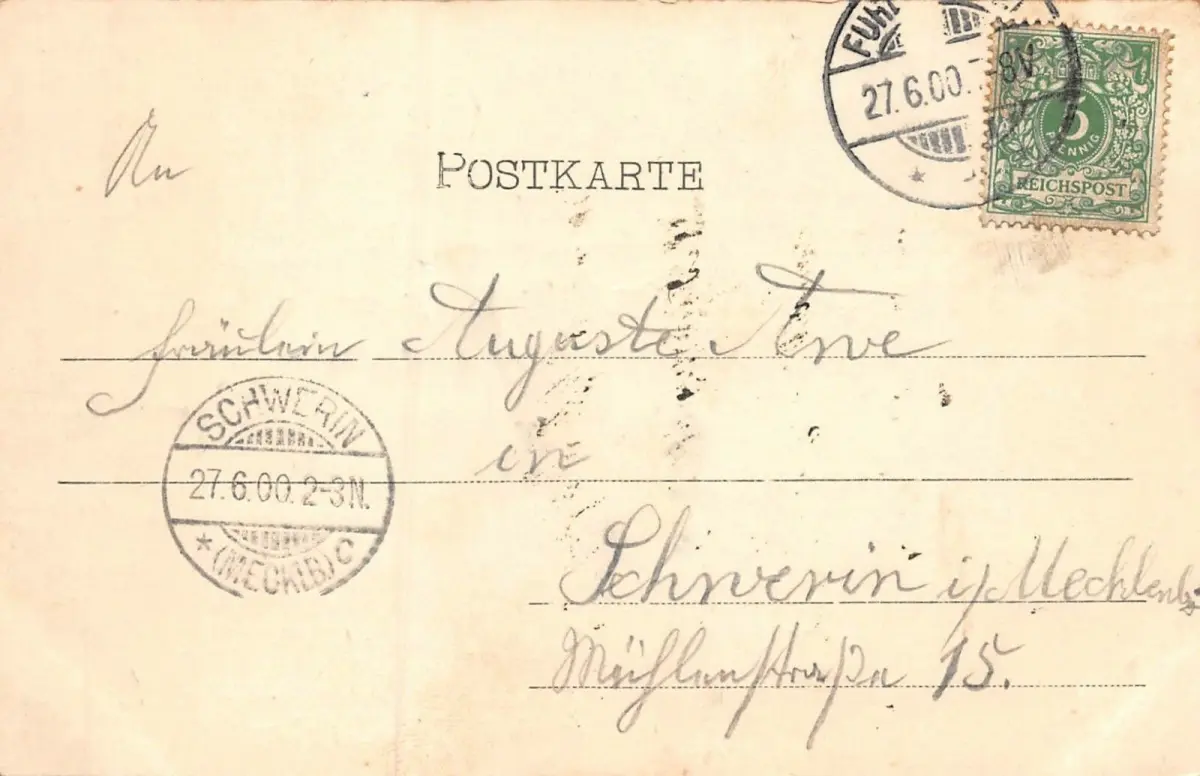 FUH
27.6.00. 7-8V
5
PFENNIG
REICHSPOST
An
POSTKARTE
Fräulein Auguste Arve
in
SCHWERIN
27.6.00. 2-3N.
* (MECKLB) C
Schwerin i/Mecklenb.
Mühlenstraße 15.